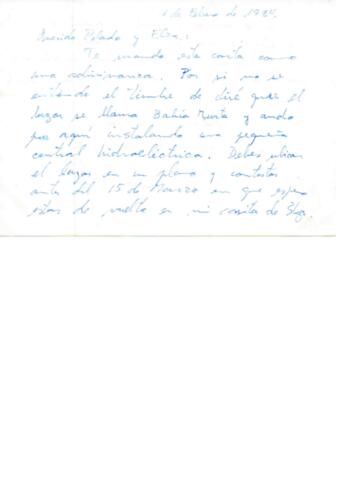 1 de Febrero de 1984.
Querido Pelado y Elsa:
Te mando esta carta como
una adivinanza. Por si no se
entiende el timbre te diré que el
lugar se llama Bahía Murta y ando
por aquí instalando una pequeña
central hidroeléctrica. Debes ubicar
el lugar en un plano y contestar
antes del 15 de Marzo en que espero
estar de vuelta en mi casita de Stgo.